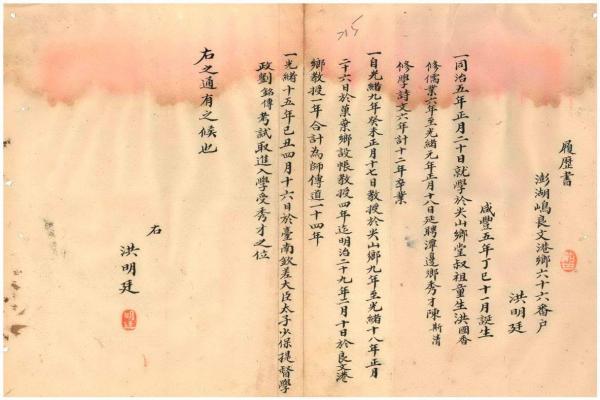 履歷書
澎湖嶋良文港鄉六十六番户
洪明廷
咸豐五年丁巳十一月誕生
一同治五年正月二十日就學於尖山鄉堂叔祖童生洪國香
修儒業六年至光緒元年正月十八日延聘潭邊鄉秀才陳斯清
修學詩文六年計十二年卒業
一自光緒九年癸未正月十七日教授於尖山鄉九年至光緒十八年正月
二十六日於菓葉鄉設帳教授四年迄明治二十九年二月十日於良文港
鄉教授一年合計為師傳道一十四年
一光緒十五年己丑四月十六日於臺南欽差大臣太子少保提督學
政劉銘傳考試取進入學受秀才之位
右之通有之候也
右
洪明廷